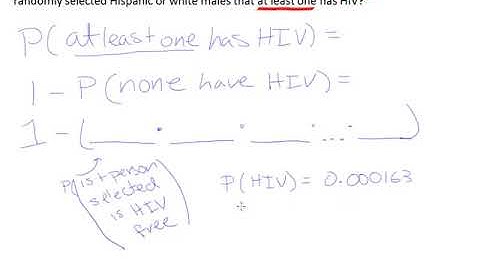 randomly selected Hispanic or white males that at least one has HIV?
P(at least one has HIV) =
1 - P(none have HIV) =
1 - (____ · ____ · ____ · ... · ____)
P(1st person
selected
is HIV
free)
P(HIV) = 0.000163